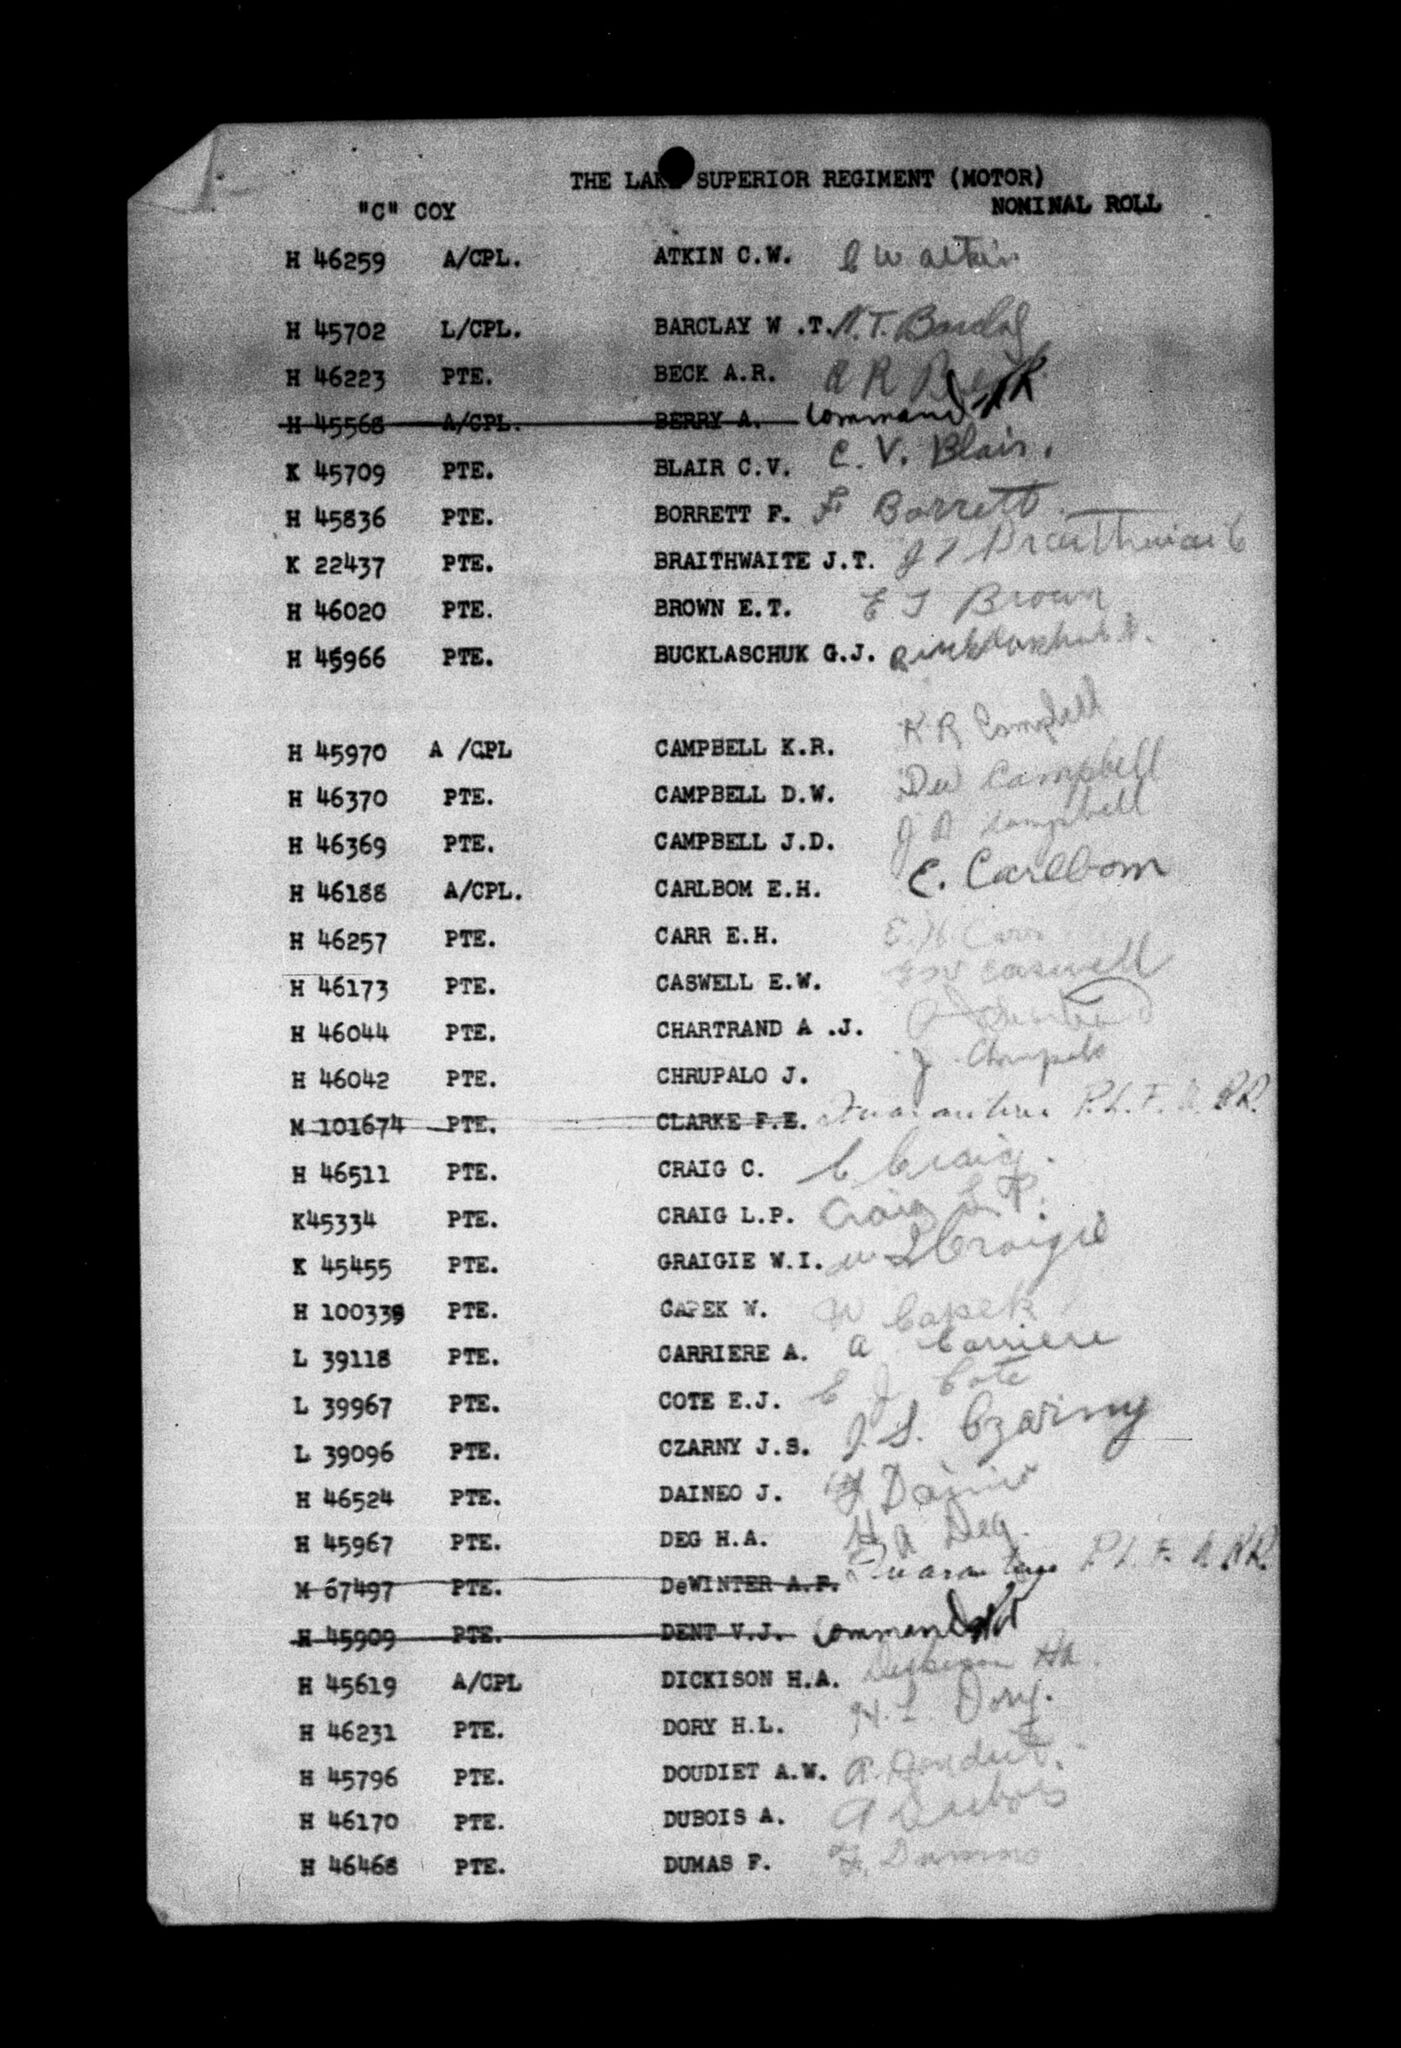 THE LAKE SUPERIOR REGIMENT (MOTOR)
"C" COY NOMINAL ROLL
H 46259 A/CPL. ATKIN C.W. C W Atkin
H 45702 L/CPL. BARCLAY W .T. W.T. Barclay
H 46223 PTE. BECK A.R. A R Beck
H 45568 A/CPL. BERRY A. Command
K 45709 PTE. BLAIR C.V. C. V. Blair.
H 45836 PTE. BORRETT F. F Borrett.
K 22437 PTE. BRAITHWAITE J.T. J T Braithwaite
H 46020 PTE. BROWN E.T. E T Brown
H 45966 PTE. BUCKLASCHUK G.J.
H 45970 A /CPL CAMPBELL K.R. K R Campbell
H 46370 PTE. CAMPBELL D.W. DW Campbell
H 46369 PTE. CAMPBELL J.D. J D Campbell
H 46188 A/CPL. CARLBOM E.H. E. Carlbom
H 46257 PTE. CARR E.H. E.H. Carr
H 46173 PTE. CASWELL E.W. E W Caswell
H 46044 PTE. CHARTRAND A .J.
H 46042 PTE. CHRUPALO J. J. Chrupalo
M 101674 PTE. CLARKE F.E. Quarantine P.L.F. A. RR.
H 46511 PTE. CRAIG C. C Craig.
K45334 PTE. CRAIG L.P. Craig L. P.
K 45455 PTE. GRAIGIE W.I. W I Craigie
H 100339 PTE. CAPEK W. W Capek
L 39118 PTE. CARRIERE A. A Carriere
L 39967 PTE. COTE E.J. E J Cote
L 39096 PTE. CZARNY J.S. J. S. Czarny
H 46524 PTE. DAINEO J. J Daineo
H 45967 PTE. DEG H.A. H A Deg.
M 67497 PTE. DeWINTER A.P. Quarantine P.L.F. A. RR.
H 45909 PTE. DENT V.J. Command
H 45619 A/CPL DICKISON H.A. Dickison HA.
H 46231 PTE. DORY H.L. H. L. Dory.
H 45796 PTE. DOUDIET A.W. A. Doudiet.
H 46170 PTE. DUBOIS A. A Dubois
H 46468 PTE. DUMAS F. F. Dumas